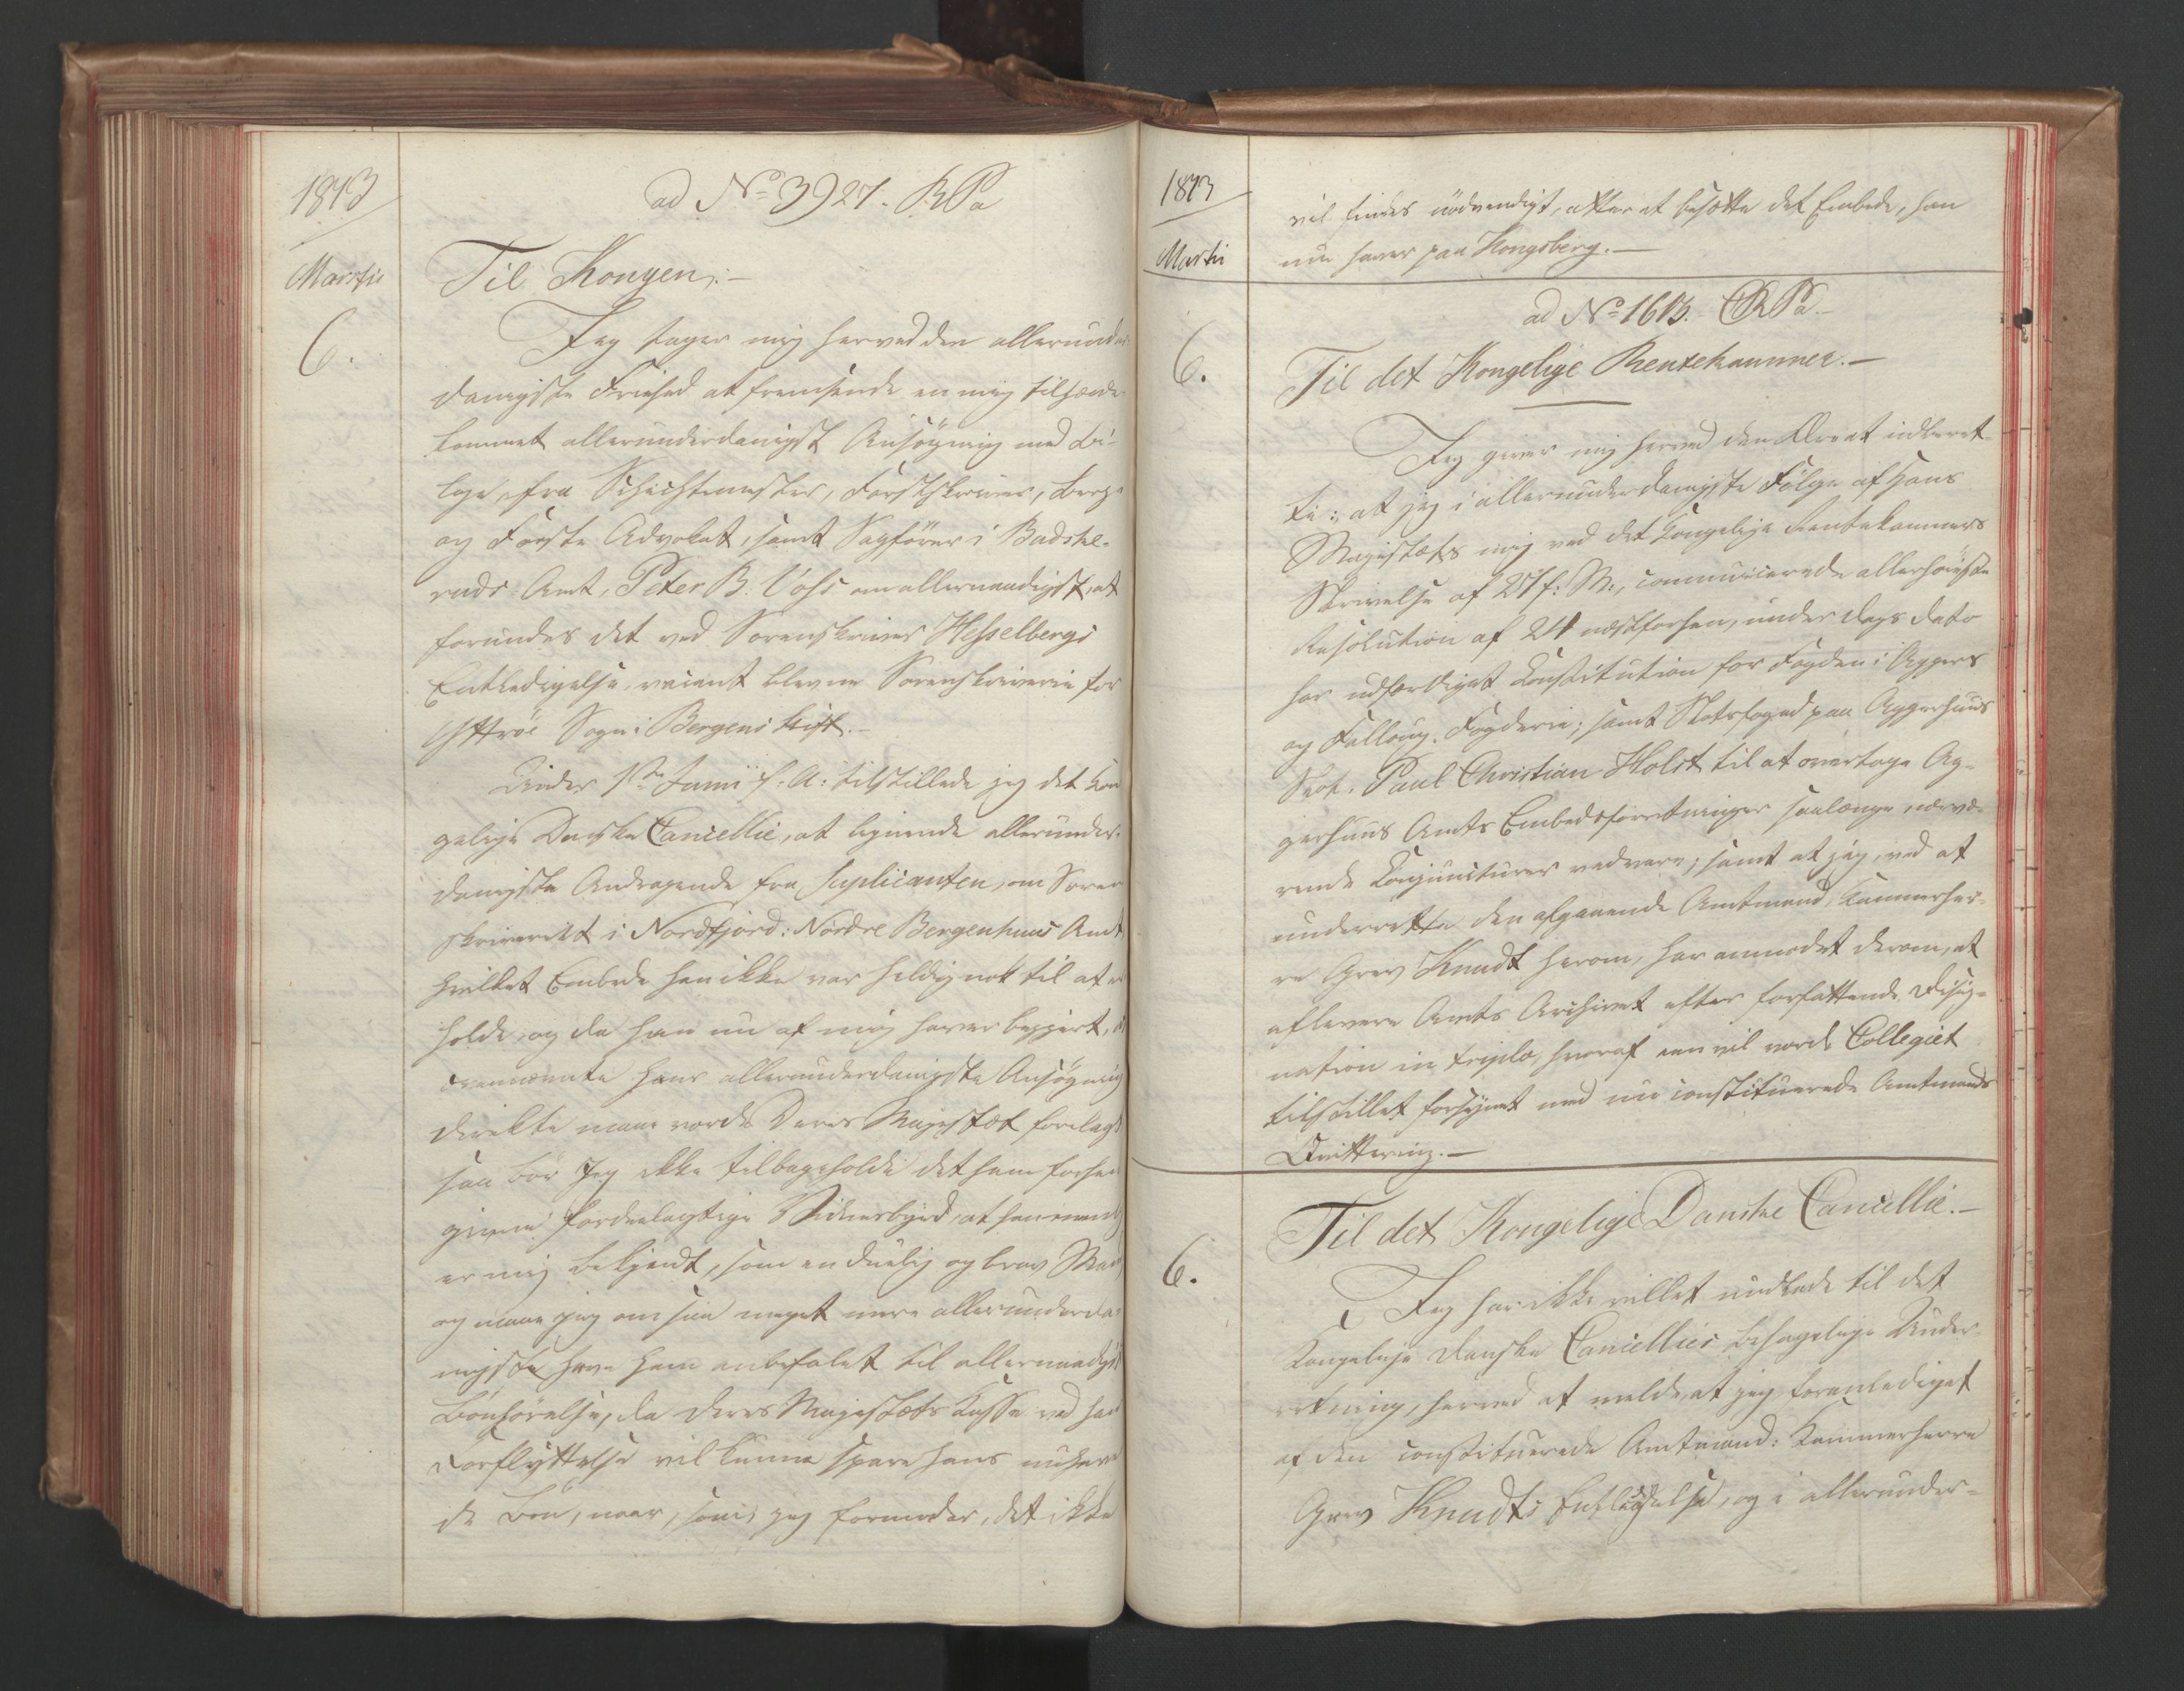 1813
Martii
6.
ad No 3927. R Pa
Til Kongen:-
Jeg tager mig herved den allerunder-
danigste Friehed at fremsende en mig tilhænde
kommet allerunderdanigst Ansøgning med Bi-
lage, fra Schichtmester, Forstskriver, Berg-
og Forste Advokat, samt Sagfører i Budske-
ruds Amt, Peter B. Voss om allernaadigst, at
forundes det ved Sorenskriver Hesselbergs
Entledigelse, vacant blevne Sorenskriverie for
Yttröe Sogn i Bergens Stift.-
Under 1ste Junii f: A: tilstillede jeg det Kon
gelige Danske Cancellie, et lignende allerunder-
danigste Andragende fra Suplicanten, om Soren
skriveriet i Nordfjord: Nordre Bergenhuus Amt
hvilket Embede han ikke var heldig nok til at er
holde, og da han nu af mig haver begjert, at
ovennævnte hans allerunderdanigste Ansøgning
direkte maae vorde Deres Majestæt forelagt
saa bør Jeg ikke tilbageholde det ham forhen
givne fordeelagtige Vidnesbyrd, at han nemlig
er mig bekjendt, som en duelig og brav Mand,
og maae jeg om saa meget mere allerunderda-
nigste have ham anbefalet til allernaadigst
Bønhørelse, da Deres Majestæts Kasse ved hans
Forflyttelse vil kunne spare hans nuhaven
de Løn, naar, som jeg formoder, det ikke
1813
Martii
vil findes nödvendigt, atter at besætte det Embede, han
nu haver paa Kongsberg.-
6.
ad No 1613. R Pa.-
Til det Kongelige Rentekammer.-
Jeg giver mig herved den Ære at indberet-
te: at jeg i allerunderdanigste Følge af Hans
Majestæts mig ved det Kongelige Rentekammers
Skrivelse af 27 f: M:, communicerede allerhøieste
Resolution af 24 næstforhen, under Dags Dato
har udfærdiget Constitution for Fogden i Aggers
og Folloug Fogderie, samt Slotsfoged paa Aggerhuus
Slot, Paul Christian Holst til at overtage Ag-
gerhuus Amts Embedsforretninger saalænge nærvæ-
rende Conjuncturer vedvare; samt at jeg, ved at
underrette den afgaaende Amtmand, Kammerher-
re Grev Knudt herom, har anmodet derom, at
aflevere Amts Archivet efter forfattende Desig-
nation in triplo, hvoraf een vil vorde Collegiet
tilstillet forsynet med nu constituerede Amtmands
Qvittering.-
6.
Til det Kongelige Danske Cancellie.-
Jeg har ikke villet undlade til det
Kongelige Danske Cancellies behagelige Under-
retning, herved at melde, at jeg foranlediget
af den constituerede Amtmand: Kammerherre
Grev Knudts Entledigelse, og i allerunder-